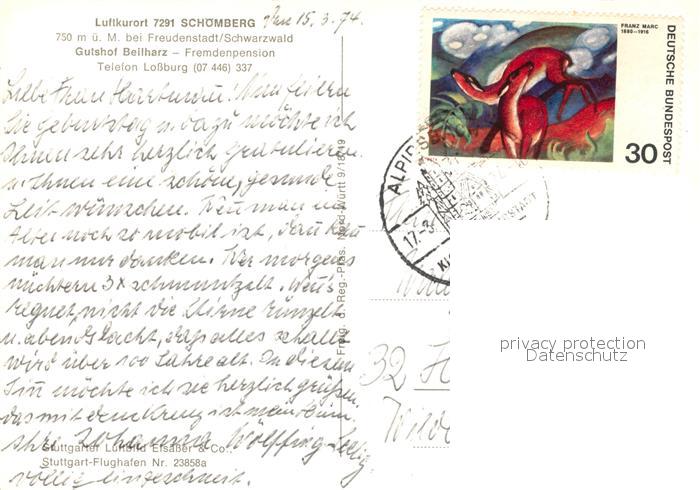 Luftkurort 7291 SCHÖMBERG
den 15.3.74.
750 m ü. M. bei Freudenstadt/Schwarzwald
Gutshof Beilharz – Fremdenpension
Telefon Loßburg (07 446) 337
Liebe Frau Hartmann! Nun feiern
Sie Geburtstag u. dazu möchte ich
Ihnen sehr herzlich gratulieren
u. Ihnen eine schöne, gesunde
Zeit wünschen. Wenn man im
Alter noch so mobil ist, dann kann
man nur danken. Wer morgens
nüchtern 3x schmunzelt. Wenn's
regnet nicht die Stirne runzelt
u. abends lacht, dass alles schallt
wird über 100 Jahre alt. In diesem
Sinn möchte ich sie herzlich grüßen
das mit dem Kreuz ist
Ihre Johanna Wölffing-Seelig
völlig eingeschneit.
Stuttgarter Luftbild Elsäßer & Co.,
Stuttgart-Flughafen Nr. 23858a
Freig. d. Reg.-Präs. Nord-Württ 9/18 19
FRANZ MARC
1880-1916
DEUTSCHE BUNDESPOST
30
ALPIR
17.-3.
32 H
Wild
privacy protection
Datenschutz